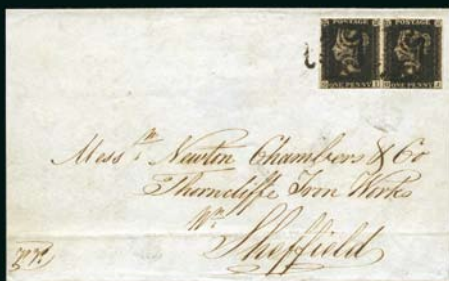 POSTAGE POSTAGE
ONE PENNY ONE PENNY
Messrs. Newton Chambers & Co
Thorncliffe Iron Works
Nr.
Sheffield